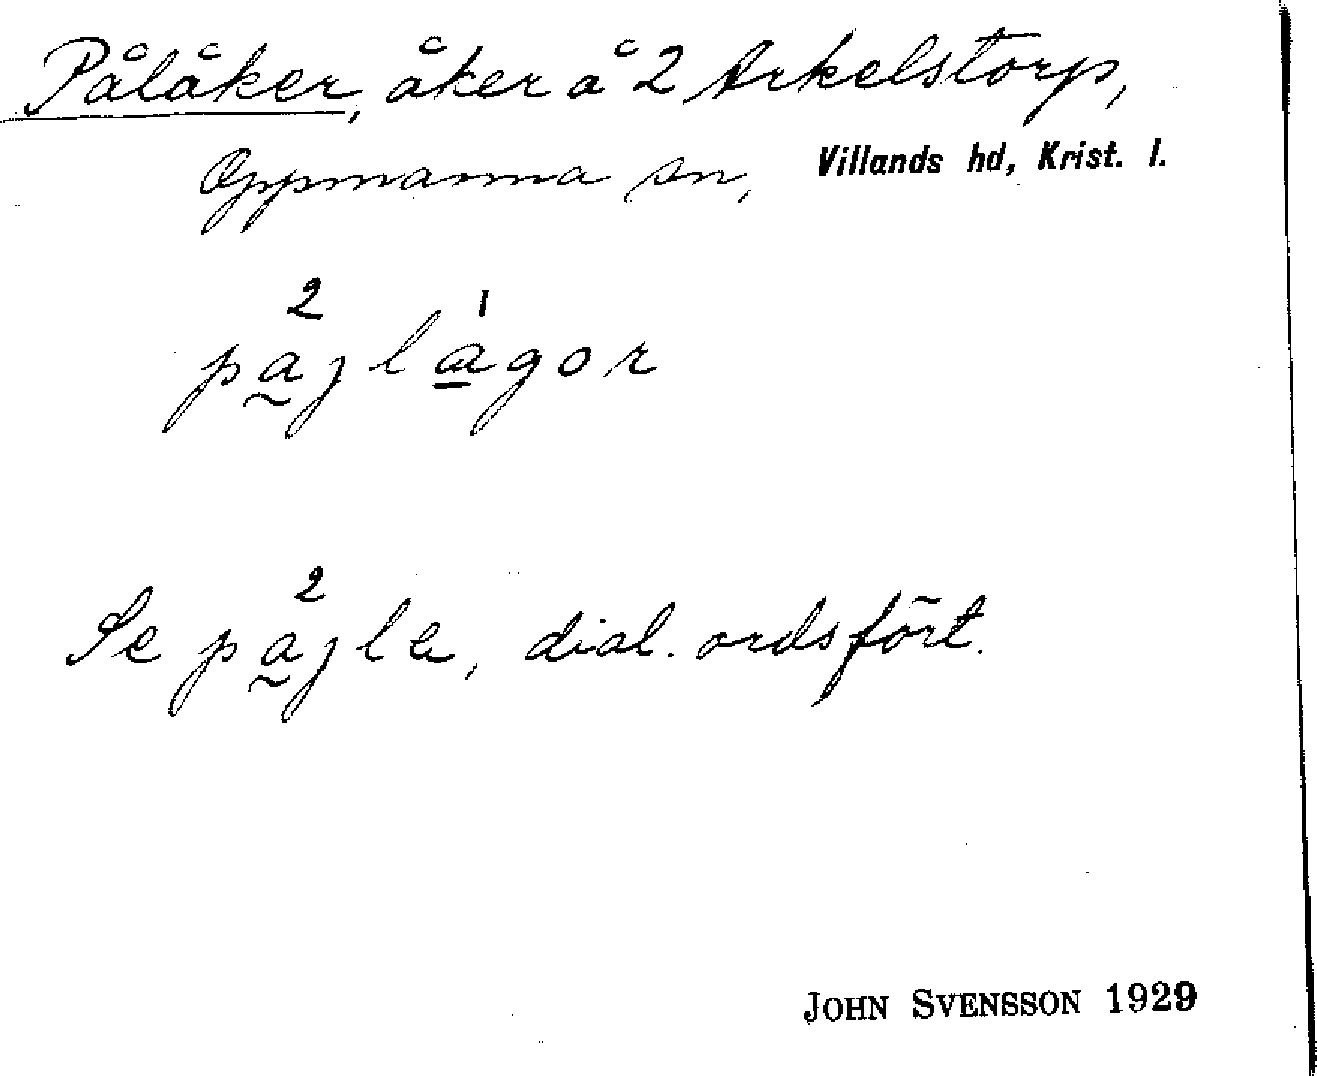 Pålåker, åker å 2 Arkelstorp,
Oppmanna sn, Villands hd, Krist. l.
2 1
pajlagor
2
Se pajla, dial. ordsfört.
JOHN SVENSSON 1929